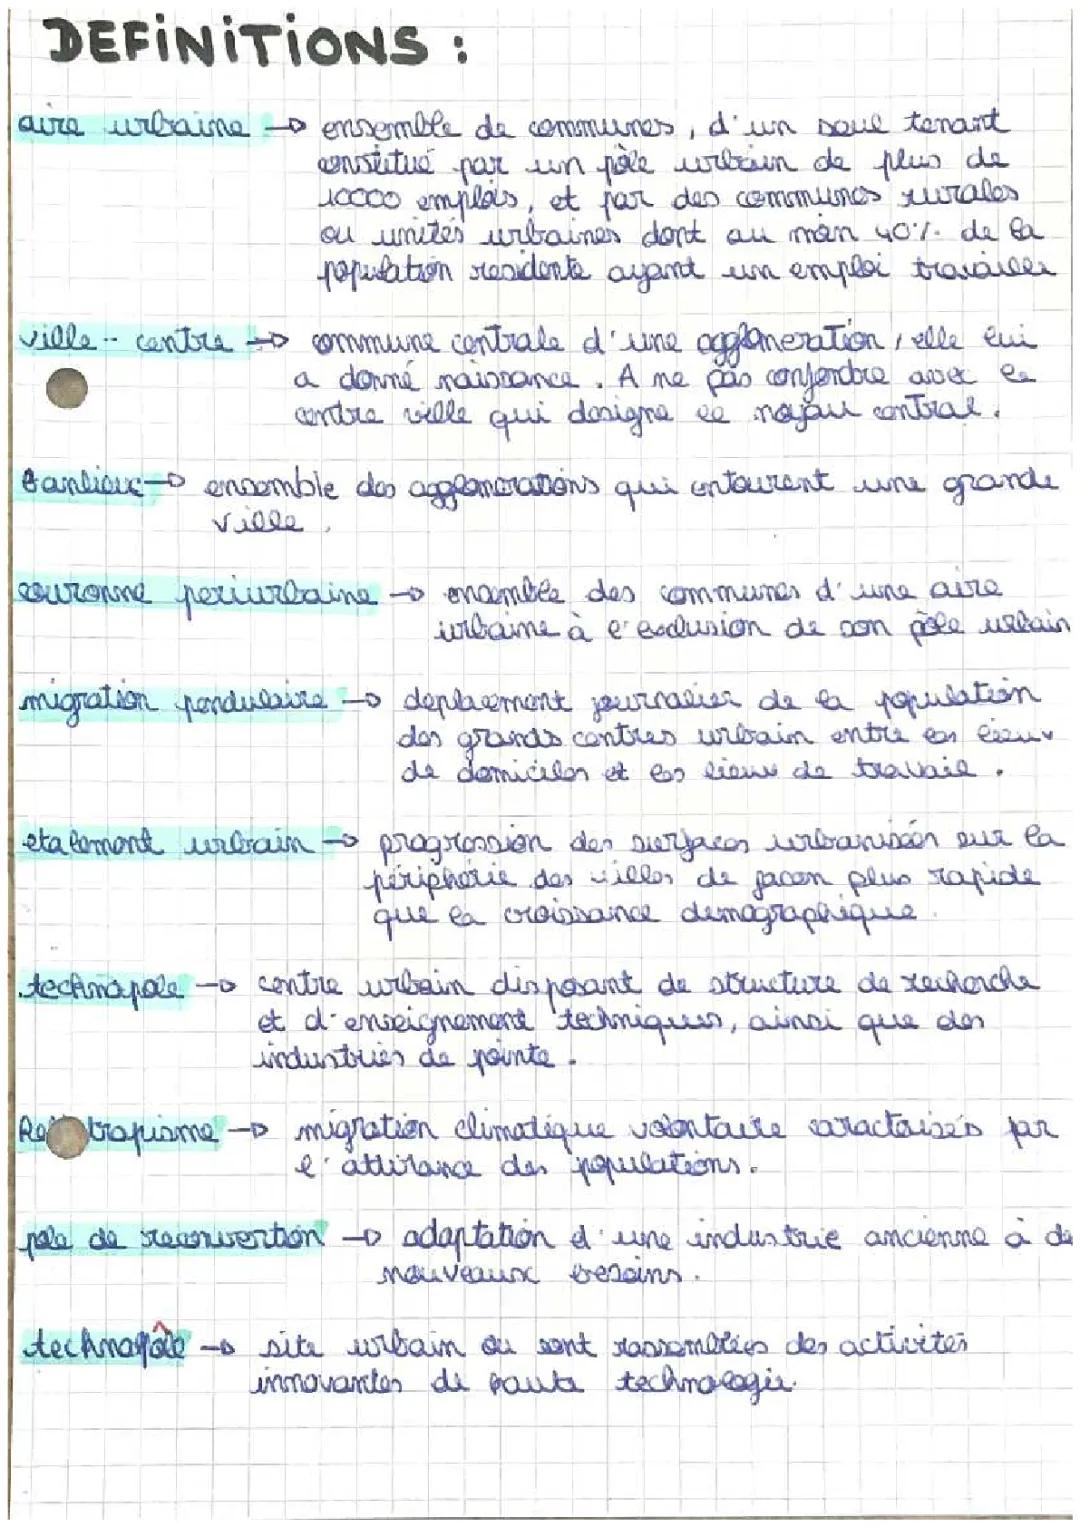 DEFINITIONS :
aire urbaine → ensemble de communes, d'un seul tenant
constitué par un pôle urbain de plus de
10000 emplois, et par des communes rurales
ou unités urbaines dont au moin 40% de la
population residente ayant un emploi travailler
ville-centre → commune centrale d'une agglomeration, elle lui
a donné naissance. A ne pas confondre avec le
centre ville qui designe le noyau central.
banlieue → ensemble des agglomerations qui entourent une grande
ville.
couronne periurbaine → ensemble des communes d'une aire
urbaine à l'exclusion de son pôle urbain
migration pendulaire → deplacement journalier de la population
des grands centres urbain entre les lieux
de domiciles et les lieux de travail.
etalement urbain → progression des surfaces urbanisées sur la
périphérie des villes de facon plus rapide
que la croissance demographique.
technopole → centre urbain disposant de structure de recherche
et d'enseignement techniques, ainsi que des
industries de pointe.
tropisme → migration climatique volontaire caracterisés par
l'attirance des populations.
pole de reconvertion → adaptation d'une industrie ancienne à de
nouveaux besoins.
technopôle → site urbain ou sont rassemblées des activités
innovantes de haute technologie.